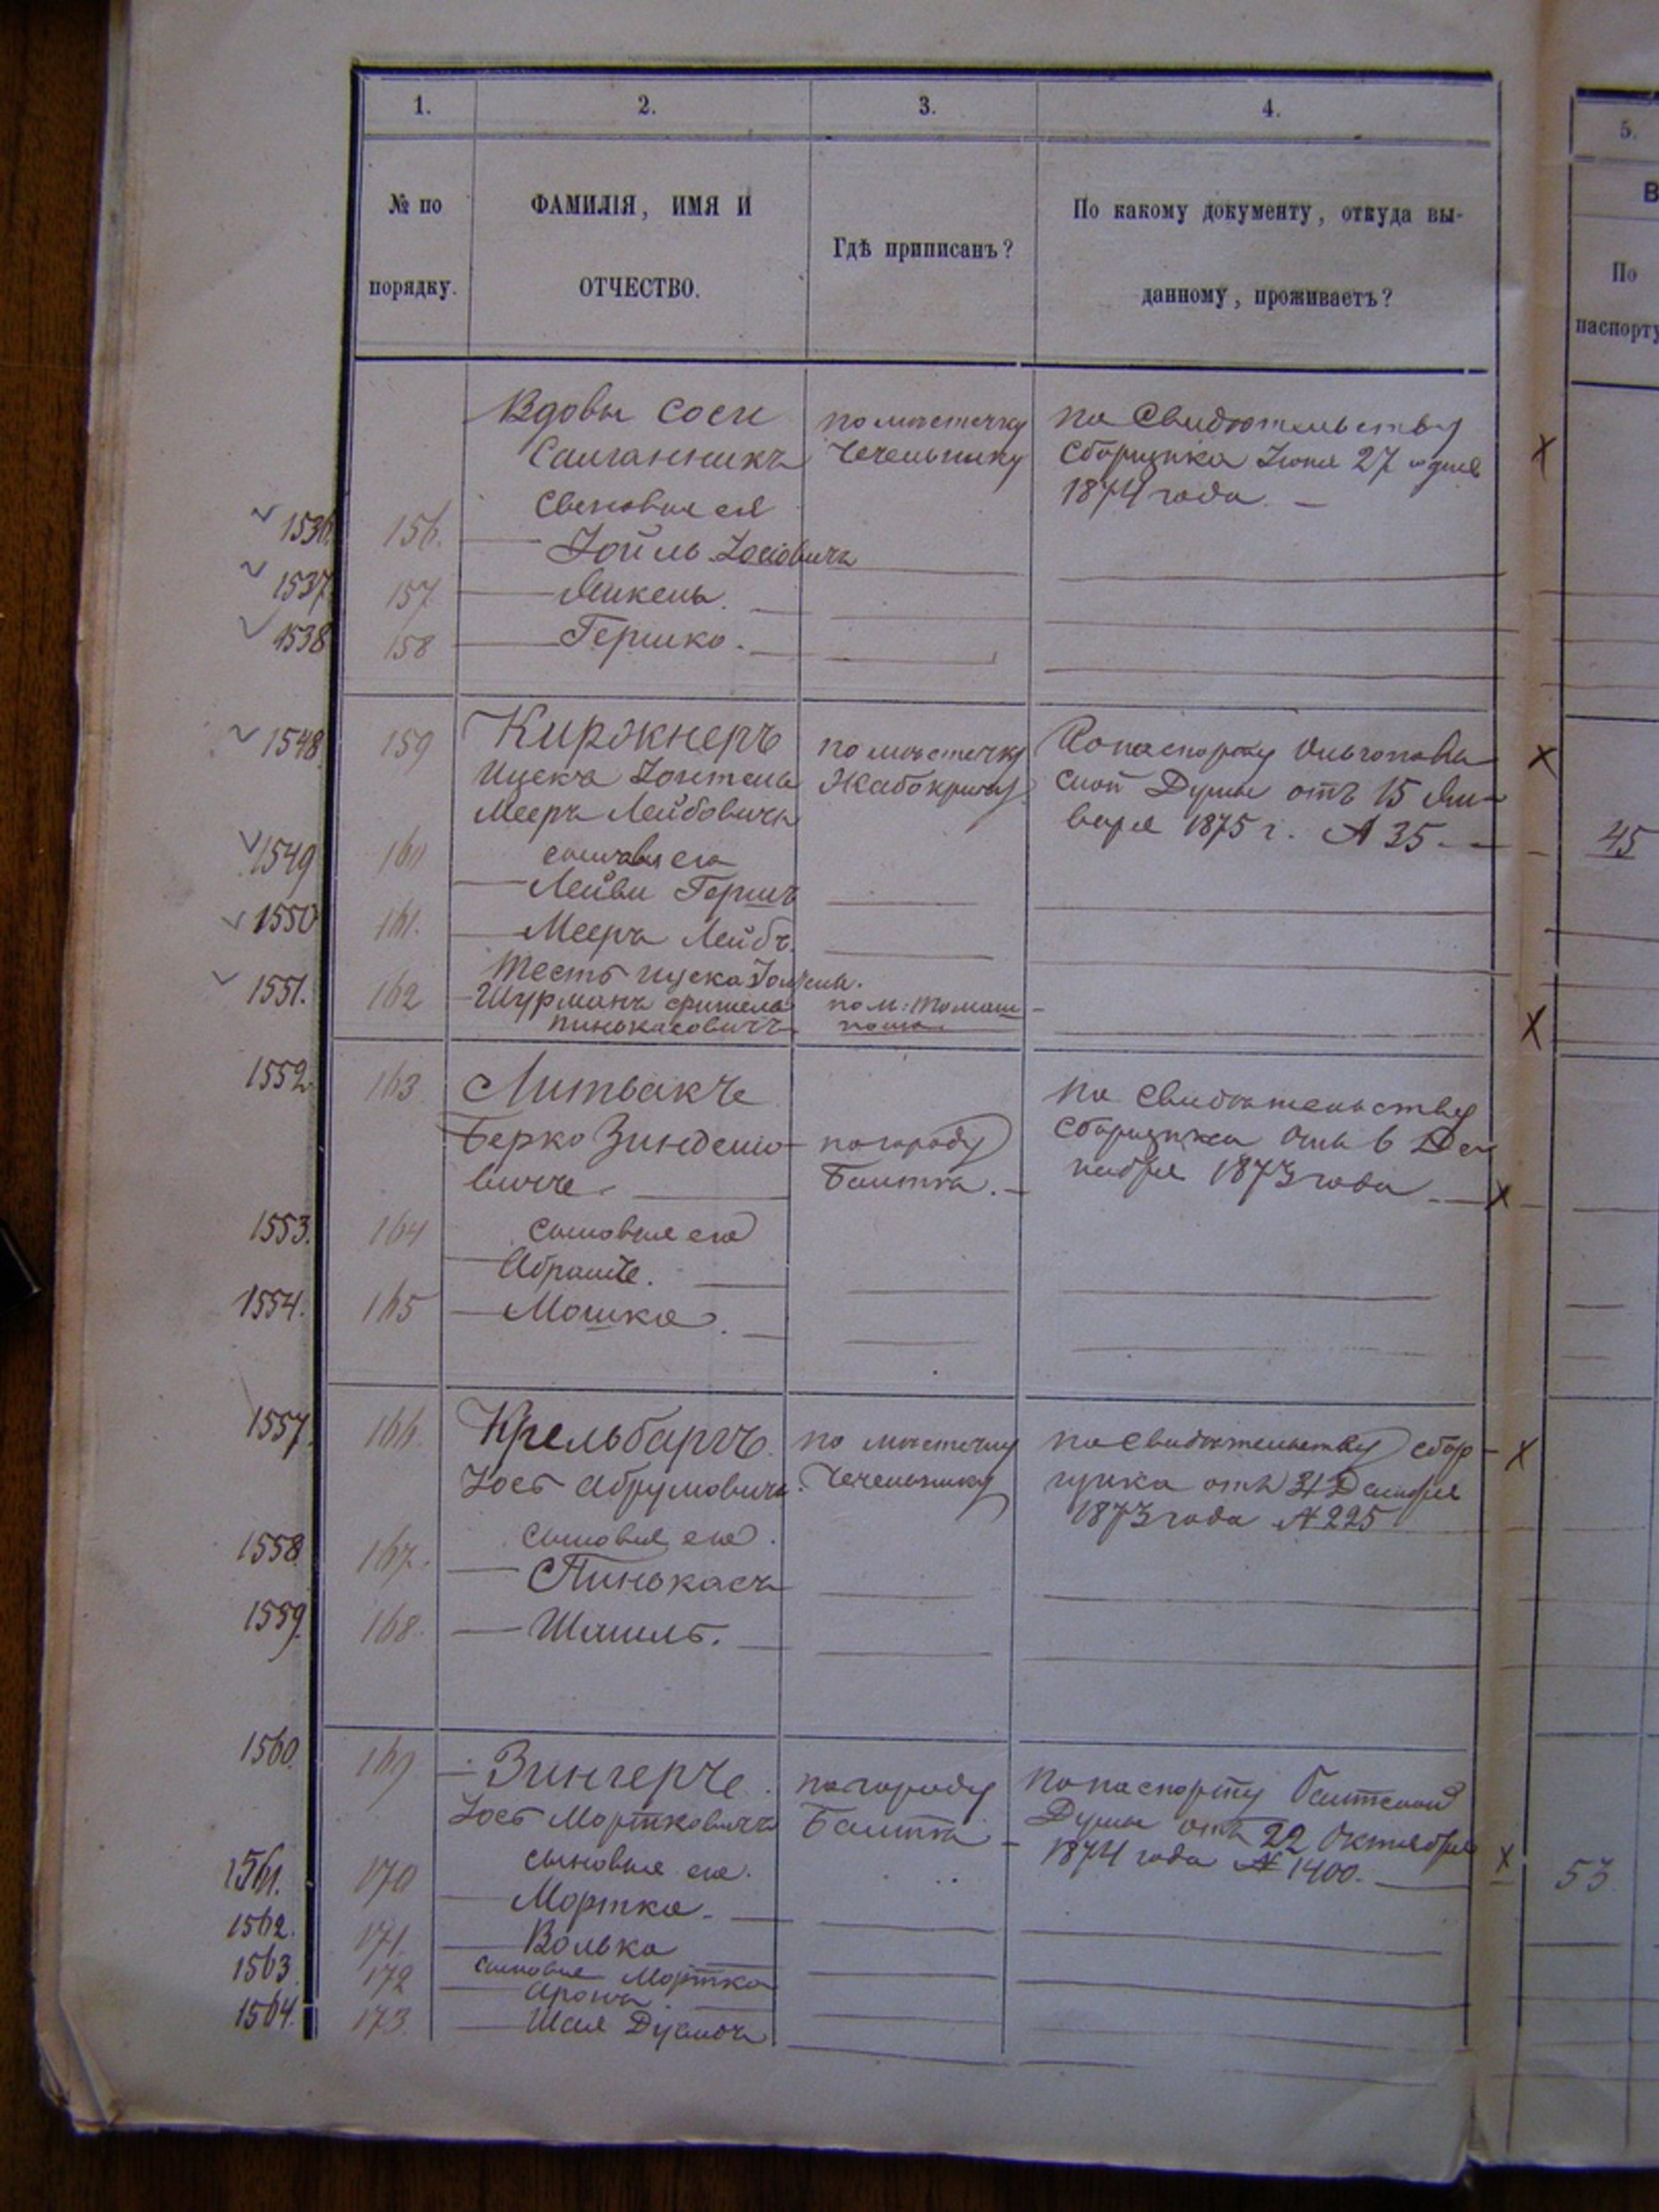 1. 2. 3. 4. 5.
№ по порядку.
ФАМИЛІЯ, ИМЯ И ОТЧЕСТВО.
Гдѣ приписанъ?
По какому документу, откуда вы-
данному, проживаетъ?
В
По
паспорту
Вдовы Соси по местечку по Свидѣтельству
Чечельнику Сборщика Іюня 27 дня
сыновья ея 1874 года. —
1536. 156. Іойль Іосіовичъ
1537 157
1538 158 Гершко.
1548 159 Киржнеръ по мѣстечку По паспорту Ольгополь
Ицекъ Жабокричу ской Думы отъ 15 Ян-
Мееръ Лейбовичъ варя 1875 г. № 35. 45
1549 160 сыновья его
Лейви Гершъ
1550 161. Мееръ Лейбъ.
Тесть Ицека
1551. 162 Шурманъ по м: Томаш
Пинькасовичъ поль
1552 163 Литвакъ по Свидѣтельству
Берко по городу Сборщика отъ 6 Де
вичъ. Балта. кабря 1873 года
1553. 164 сыновья его
Абрамъ.
1554. 165 Мошко.
1557. 166. Крельбаргъ по мѣстечку по Свидѣтельству сбор
Іось Абрумовичъ. Чечельнику щика отъ 31 Декабря
1873 года № 225
1558 167. сыновья его.
Пинькасъ
1559. 168. Шмиль.
1560. 169 Зингеръ по городу По паспорту Балтской
Іось Мортковичъ Балта Думы отъ 22 Октября
сыновья его. 1874 года № 1400. 53
1561. 170 Мортко.
1562. 171. Волько
1563 172 сыновья Мортка
Аронъ.
1564. 173. Шая